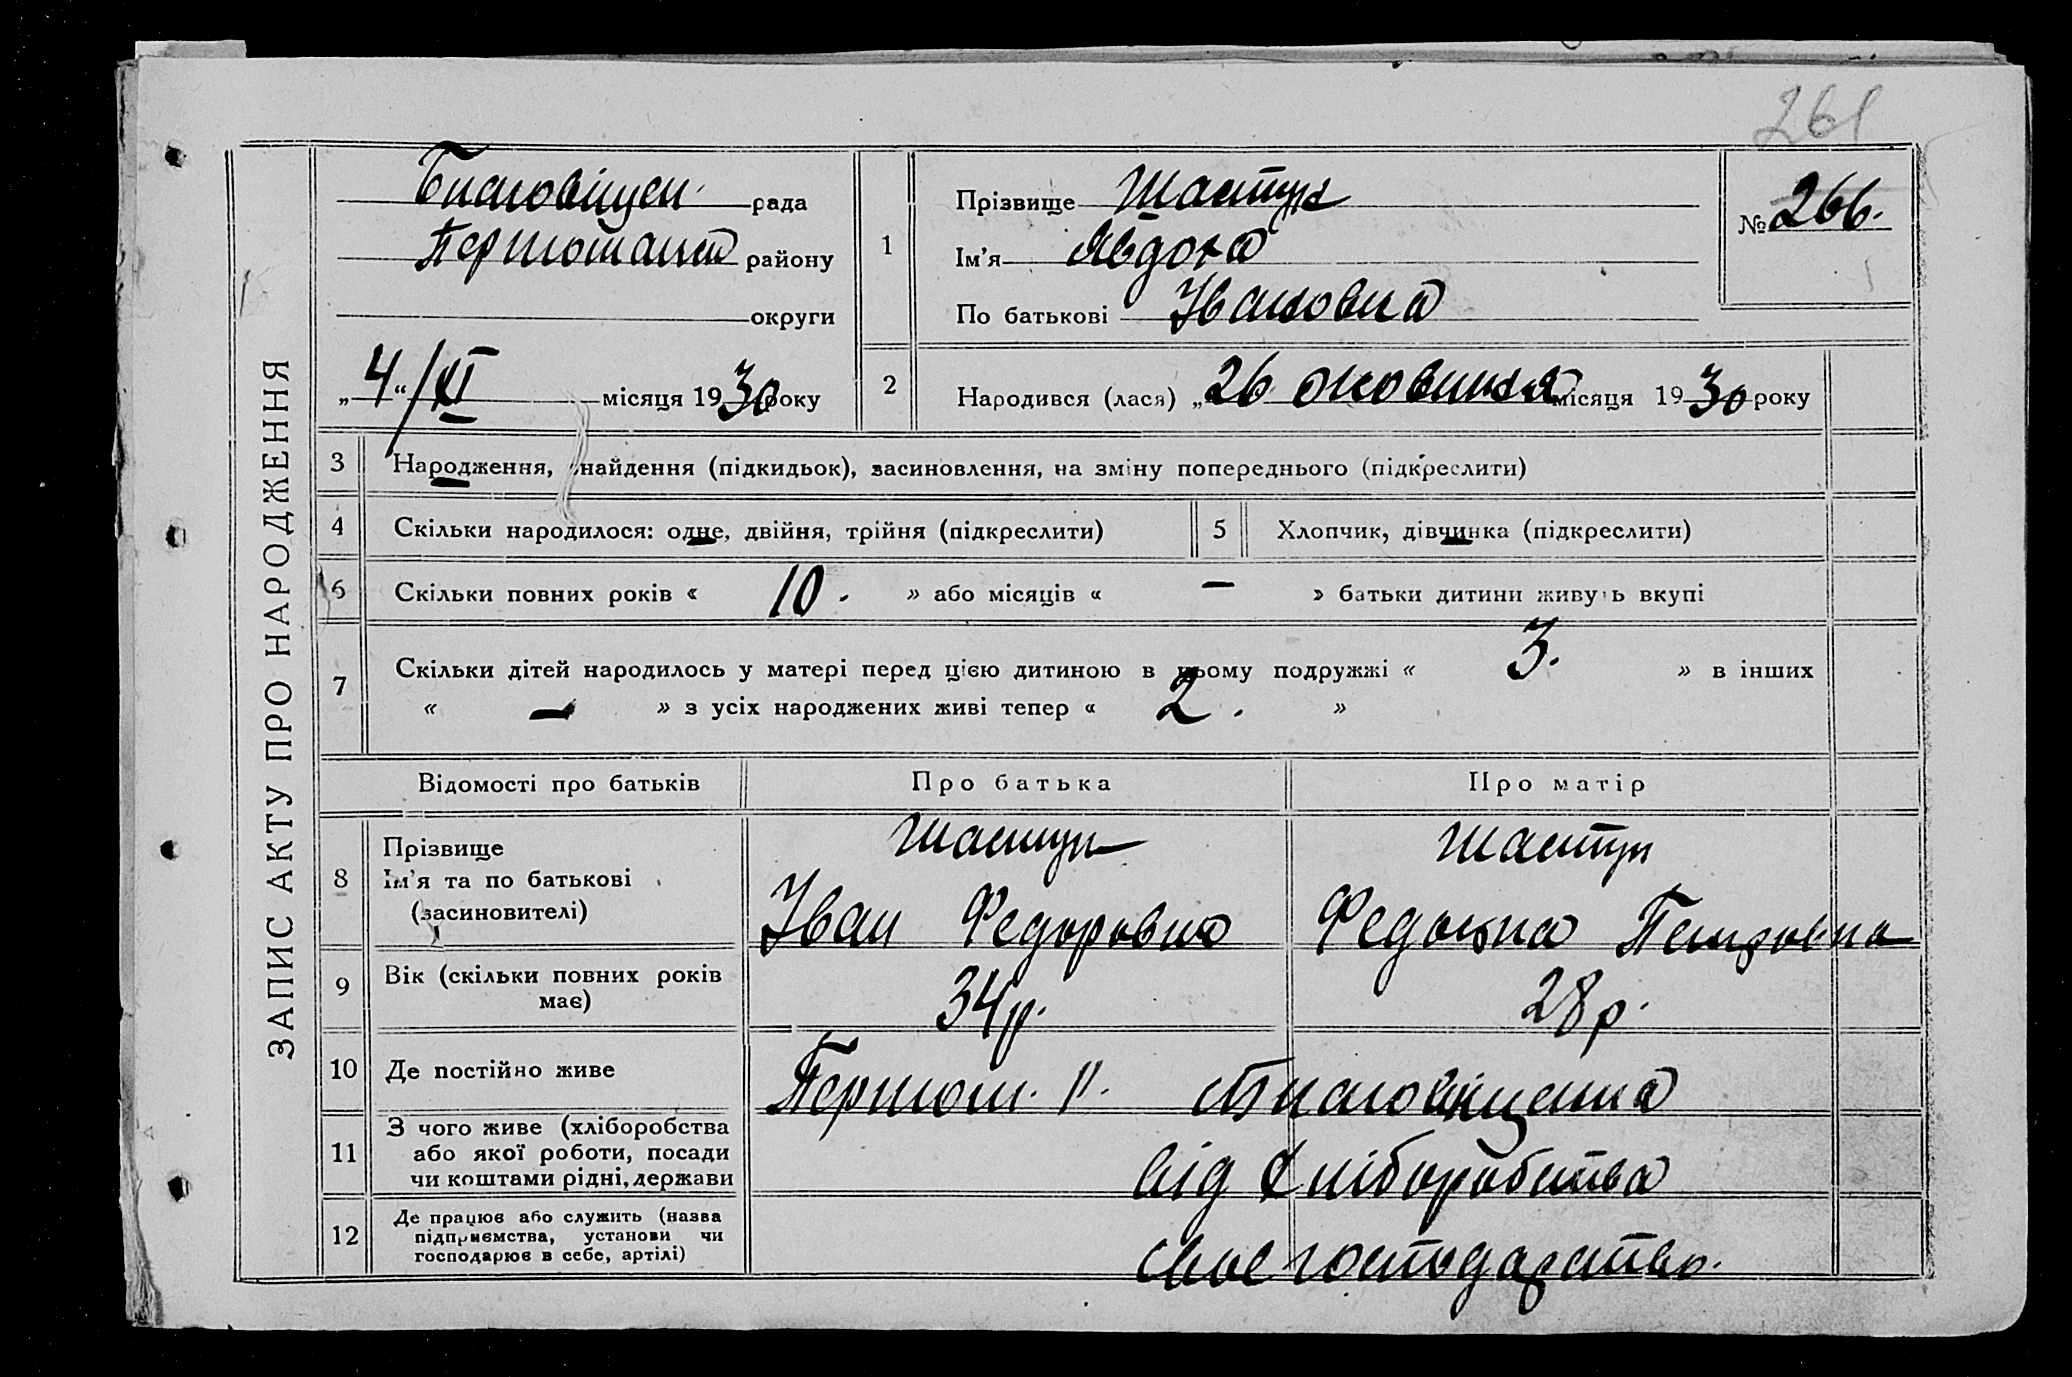 261
ЗАПИС АКТУ ПРО НАРОДЖЕННЯ
Благовіщен рада
Першотравн району
округи
„4“/XI місяця 1930 року
1
Прізвище Шастун
Ім’я Явдоха
По батькові Івановна
№ 266.
2 Народився (лася) „26 жовтня місяця 1930 року
3 Народження, знайдення (підкидьок), засиновлення, на зміну попереднього (підкреслити)
4 Скільки народилося: одне, двійня, трійня (підкреслити)
5 Хлопчик, дівчинка (підкреслити)
6 Скільки повних років « 10. » або місяців « – » батьки дитини живуть вкупі
7 Скільки дітей народилось у матері перед цією дитиною в цьому подружжі « 3. » в інших
« – » з усіх народжених живі тепер « 2. »
Відомості про батьків Про батька Про матір
8 Прізвище
Ім’я та по батькові
(засиновителі)
Шастун
Іван Федоровна
Шастун
Петровна
9 Вік (скільки повних років
має)
34р.
28р.
10 Де постійно живе
Першот. Р. Благовіщенка
11 З чого живе (хліборобства
або якої роботи, посади
чи коштами рідні, держави
від хліборобства
12 Де працює або служить (назва
підприємства, установи чи
господарює в себе, артілі)
своє господарство.